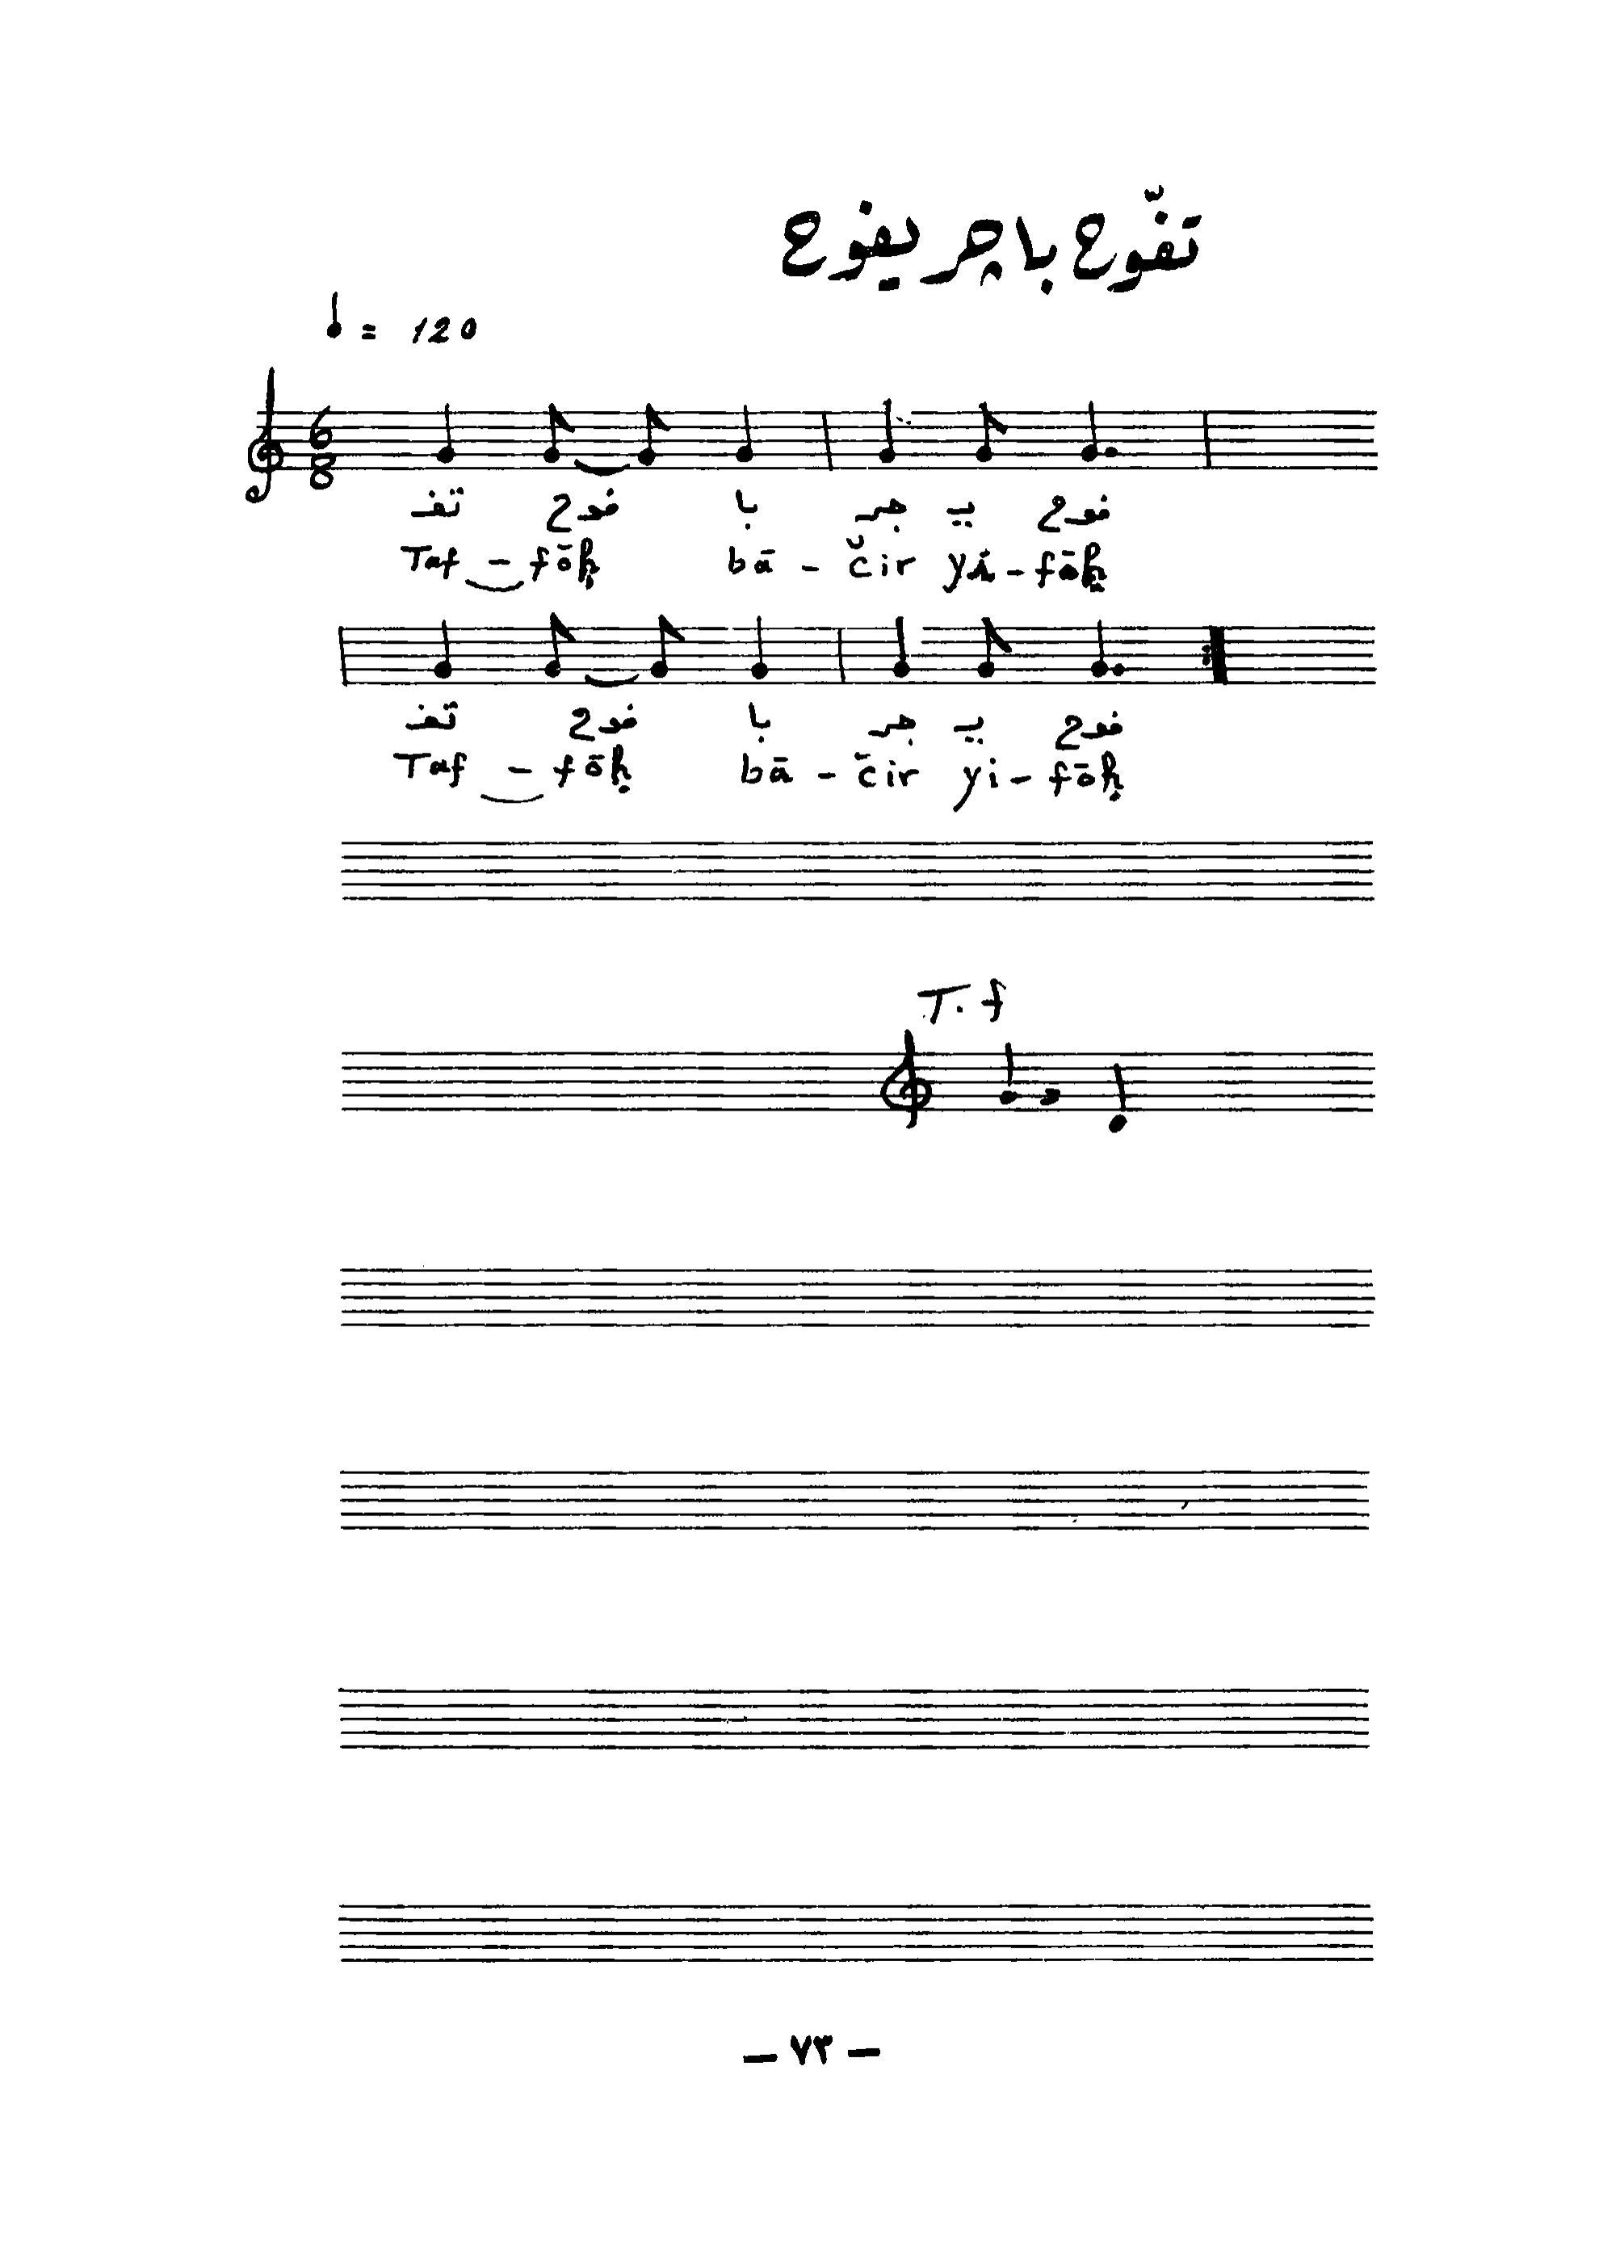 تفّوح باچر يفوح
= 120
6
8
تفـ فوح با جر يـ فوح
Taf - fōḥ bā - čir yi - fōḥ
تفـ فوح با جر يـ فوح
Taf - fōḥ bā - čir yi - fōḥ
T. f
— ٧٣ —